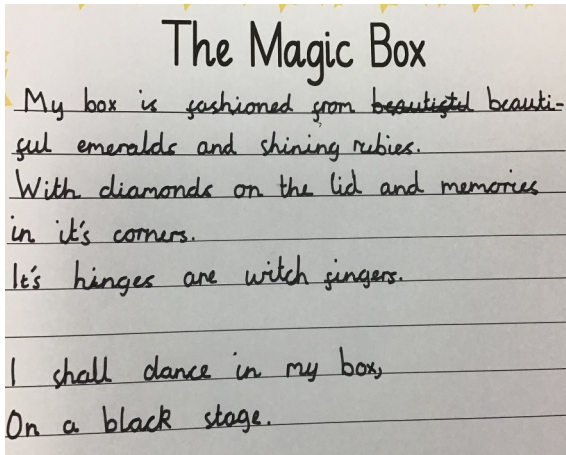 The Magic Box
My box is fashioned from beautiful beauti-
ful emeralds and shining rubies.
With diamonds on the lid and memories
in it's corners.
It's hinges are witch fingers.
I shall dance in my box,
On a black stage.